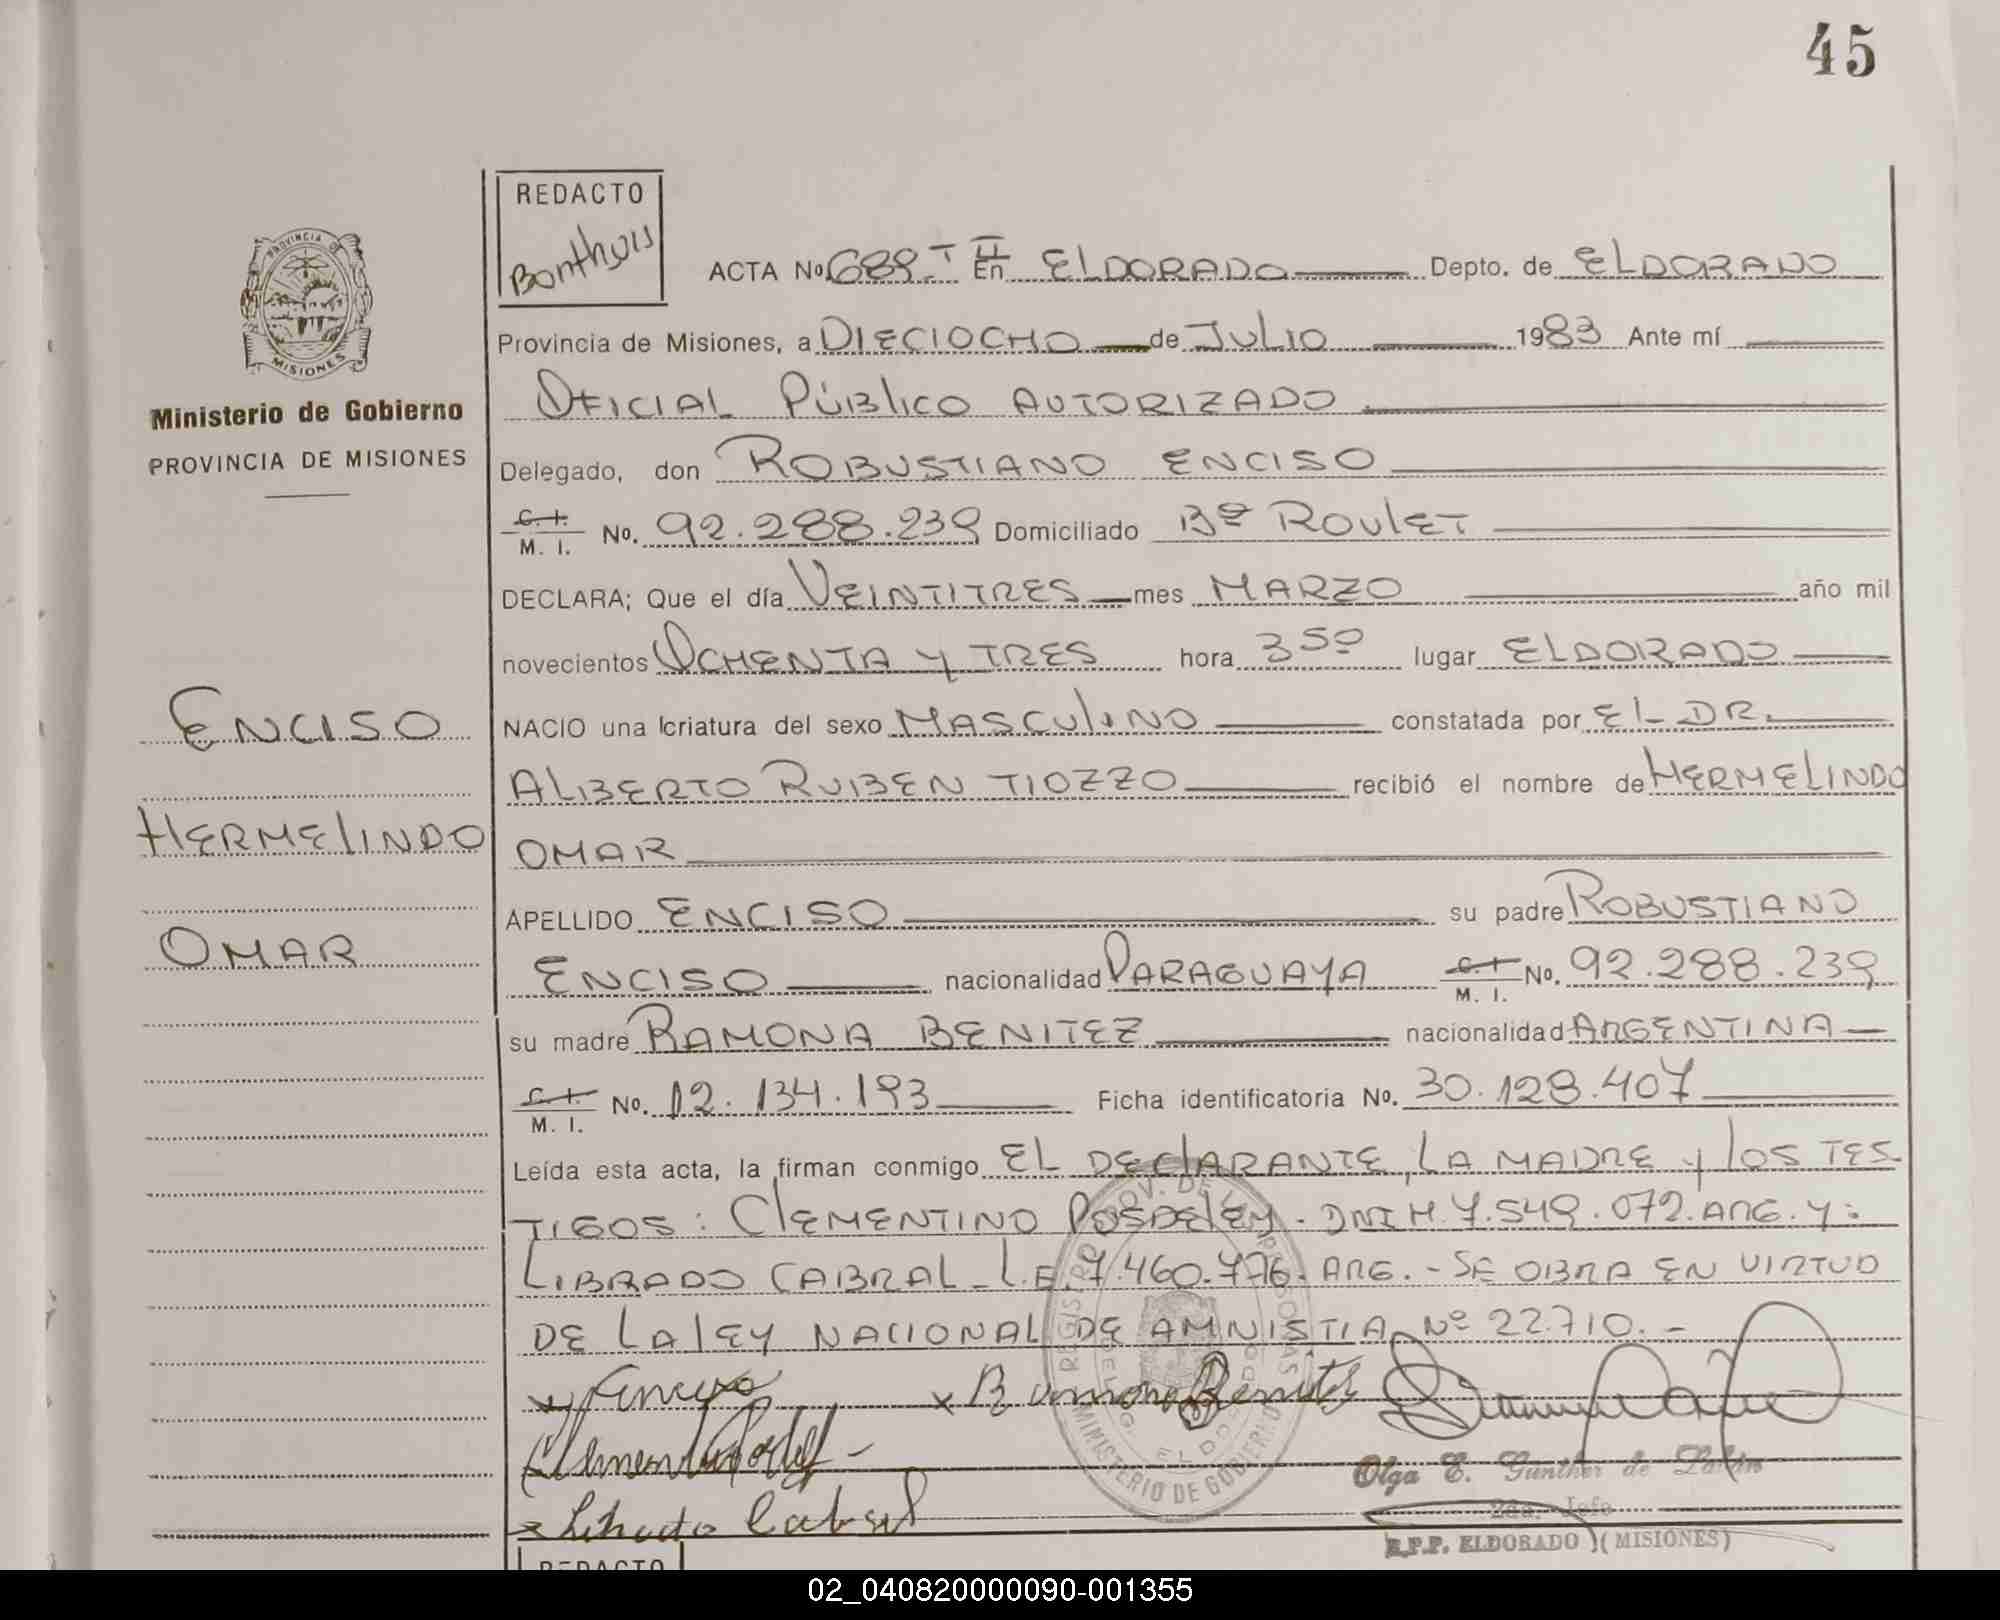 45
REDACTO
Bonthuis
ACTA No. 689-T II En ELDORADO Depto. de ELDORADO
Provincia de Misiones, a DIECIOCHO de JULIO 1983 Ante mí
OFICIAL PÚBLICO AUTORIZADO
Delegado, don ROBUSTIANO ENCISO
C. I. M. I. No. 92.288.239 Domiciliado Bº ROULET
DECLARA; Que el día VEINTITRES mes MARZO año mil
novecientos OCHENTA Y TRES hora 3 50 lugar ELDORADO
NACIO una criatura del sexo MASCULINO constatada por EL DR.
ALBERTO RUBEN TIOZZO recibió el nombre de HERMELINDO
OMAR
APELLIDO ENCISO su padre ROBUSTIANO
ENCISO nacionalidad PARAGUAYA C. I. M. I. No. 92.288.239
su madre RAMONA BENITEZ nacionalidad ARGENTINA
C. I. M. I. No. 12.134.193 Ficha identificatoria No. 30.129.407
Leída esta acta, la firman conmigo EL DECLARANTE, LA MADRE Y LOS TES
TIGOS: CLEMENTINO POSDELEY. DNI M. 7.549.072. ARG. Y:
LIBRADO CABRAL - L.E. 7.460.776. ARG. - SE OBRA EN VIRTUD
DE LA LEY NACIONAL DE AMNISTIA Nº 22.710. -
x Ramona Benitez
x Librado Cabral
Olga E. Gunther de
2da. Jefe
R.P.P. ELDORADO (MISIONES)
REGISTRO PROV. DE LAS PERSONAS
DELEG. ELDORADO
MINISTERIO DE GOBIERNO
PROVINCIA DE
MISIONES
Ministerio de Gobierno
PROVINCIA DE MISIONES
ENCISO
HERMELINDO
OMAR
REDACTO
02_040820000090-001355